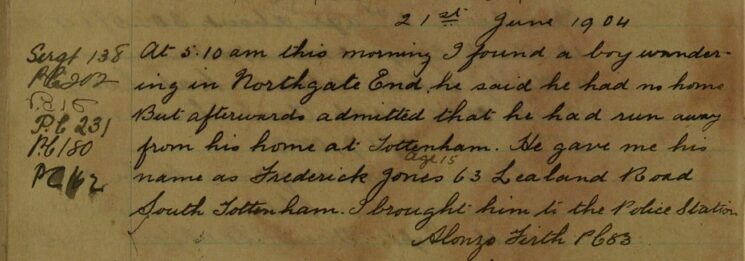 21st June 1904
Sergt 138
PC 202
P.C 231
PC 180
PC 62
At 5.10 am this morning I found a boy wander-
ing in Northgate End, he said he had no home
But afterwards admitted that he had run away
from his home at Tottenham. He gave me his
age 15
name as Frederick Jones 63 Lealand Road
South Tottenham. I brought him to the Police Station
Alonzo Firth PC 83